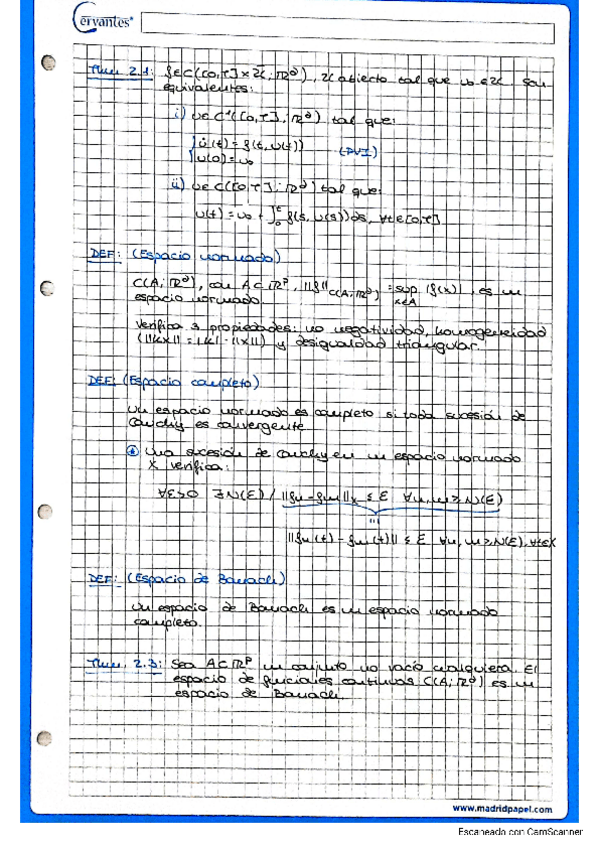 Cervantes®
Thm 2.1: f∈C([0,T]×U̅; ℝᵈ), U abierto tal que u₀∈U. Son
equivalentes:
i) u∈C¹([0,T]; ℝᵈ) tal que:
{u̇(t) = f(t, u(t))
{u(0) = u₀ (PVI)
ii) u∈C([0,T]; ℝᵈ) tal que:
u(t) = u₀ + ∫₀ᵗ f(s, u(s))ds, ∀t∈[0,T]
DEF: (Espacio normado)
C(A; ℝᵈ), con A⊂ℝᵖ, ||f||_C(A; ℝᵈ) = sup_{x∈A} |f(x)|, es un
espacio normado.
Verifica 3 propiedades: no negatividad, homogeneidad
(||kx|| = |k|·||x||) y desigualdad triangular.
DEF: (Espacio completo)
Un espacio normado es completo si toda sucesión de
Cauchy es convergente.
Una sucesión de Cauchy en un espacio normado
X verifica:
∀ε>0 ∃N(ε) / ||fn - fm||_X ≤ ε ∀n, m ≥ N(ε)
||fn(t) - fm(t)|| ≤ ε ∀n, m ≥ N(ε), ∀t∈X
DEF: (Espacio de Banach)
Un espacio de Banach es un espacio normado
completo.
Thm. 2.3: Sea A⊂ℝᵖ un conjunto no vacío cualquiera. El
espacio de funciones continuas C(A; ℝᵈ) es un
espacio de Banach.
www.madridpapel.com
Escaneado con CamScanner